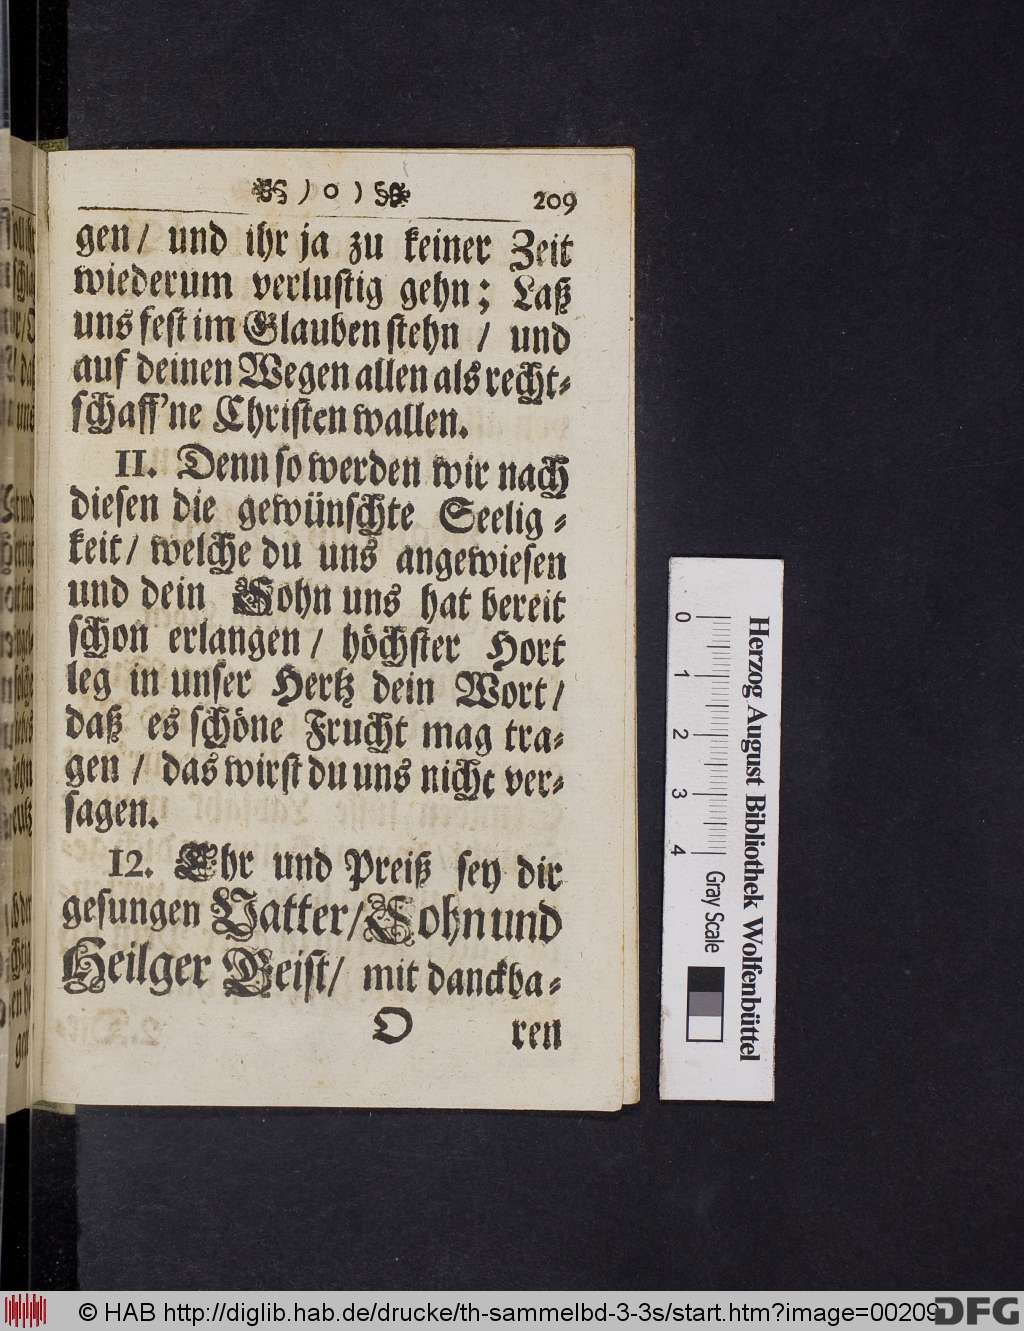 ) o ( 209
gen / und ihr ja zu keiner Zeit
wiederum verlustig gehn; Laß
uns fest im Glauben stehn / und
auf deinen Wegen allen als recht-
schaff'ne Christen wallen.
11. Denn so werden wir nach
diesen die gewünschte Seelig-
keit / welche du uns angewiesen
und dein Sohn uns hat bereit
schon erlangen / höchster Hort
leg in unser Hertz dein Wort /
daß es schöne Frucht mag tra-
gen / das wirst du uns nicht ver-
sagen.
12. Ehr und Preiß sey dir
gesungen Vatter / Sohn und
Heilger Geist / mit danckba-
O ren
Herzog August Bibliothek Wolfenbüttel
0 1 2 3 4 Gray Scale
© HAB http://diglib.hab.de/drucke/th-sammelbd-3-3s/start.htm?image=00209
DFG